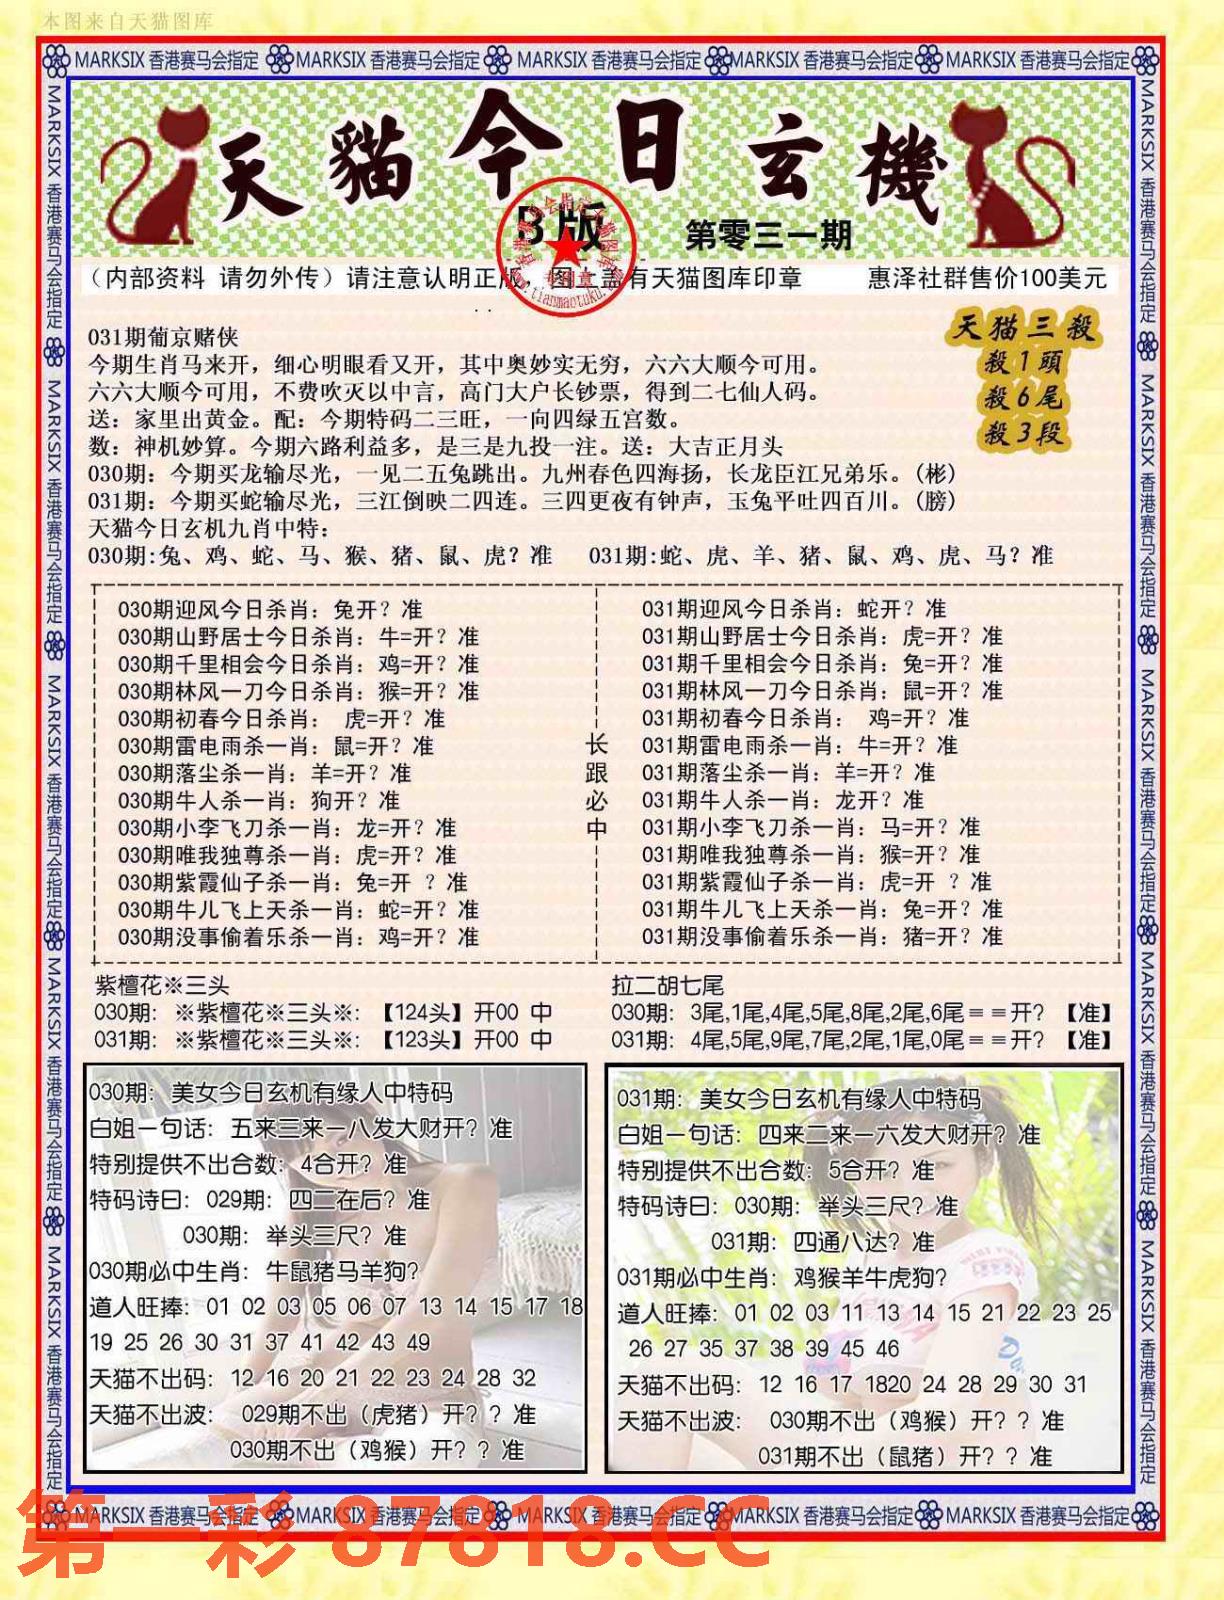 本图来自天猫图库
MARKSIX 香港赛马会指定 MARKSIX 香港赛马会指定 MARKSIX 香港赛马会指定 MARKSIX 香港赛马会指定 MARKSIX 香港赛马会指定
天貓今日玄機
B版
第零三一期
（内部资料 请勿外传）请注意认明正版 图 盖有天猫图库印章 惠泽社群售价100美元
专用章
www.tianmaotuku.
天猫三殺
殺1頭
殺6尾
殺3段
031期葡京赌侠
今期生肖马来开，细心明眼看又开，其中奥妙实无穷，六六大顺今可用。
六六大顺今可用，不费吹灭以中言，高门大户长钞票，得到二七仙人码。
送：家里出黄金。配：今期特码二三旺，一向四绿五宫数。
数：神机妙算。今期六路利益多，是三是九投一注。送：大吉正月头
030期：今期买龙输尽光，一见二五兔跳出。九州春色四海扬，长龙臣江兄弟乐。(彬)
031期：今期买蛇输尽光，三江倒映二四连。三四更夜有钟声，玉兔平吐四百川。(膀)
天猫今日玄机九肖中特：
030期:兔、鸡、蛇、马、猴、猪、鼠、虎？准 031期:蛇、虎、羊、猪、鼠、鸡、虎、马？准
030期迎风今日杀肖：兔开？准
030期山野居士今日杀肖：牛=开？准
030期千里相会今日杀肖：鸡=开？准
030期林风一刀今日杀肖：猴=开？准
030期初春今日杀肖： 虎=开？准
030期雷电雨杀一肖：鼠=开？准
030期落尘杀一肖：羊=开？准
030期牛人杀一肖：狗开？准
030期小李飞刀杀一肖：龙=开？准
030期唯我独尊杀一肖：虎=开？准
030期紫霞仙子杀一肖：兔=开 ？准
030期牛儿飞上天杀一肖：蛇=开？准
030期没事偷着乐杀一肖：鸡=开？准
长跟必中
031期迎风今日杀肖：蛇开？准
031期山野居士今日杀肖：虎=开？准
031期千里相会今日杀肖：兔=开？准
031期林风一刀今日杀肖：鼠=开？准
031期初春今日杀肖： 鸡=开？准
031期雷电雨杀一肖：牛=开？准
031期落尘杀一肖：羊=开？准
031期牛人杀一肖：龙开？准
031期小李飞刀杀一肖：马=开？准
031期唯我独尊杀一肖：猴=开？准
031期紫霞仙子杀一肖：虎=开 ？准
031期牛儿飞上天杀一肖：兔=开？准
031期没事偷着乐杀一肖：猪=开？准
紫檀花※三头
030期： ※紫檀花※三头※: 【124头】开00 中
031期： ※紫檀花※三头※: 【123头】开00 中
拉二胡七尾
030期： 3尾,1尾,4尾,5尾,8尾,2尾,6尾＝＝开？ 【准】
031期： 4尾,5尾,9尾,7尾,2尾,1尾,0尾＝＝开？ 【准】
030期：美女今日玄机有缘人中特码
白姐一句话：五来三来一八发大财开？准
特别提供不出合数：4合开？准
特码诗曰：029期：四二在后？准
030期：举头三尺？准
030期必中生肖：牛鼠猪马羊狗？
道人旺捧：01 02 03 05 06 07 13 14 15 17 18
19 25 26 30 31 37 41 42 43 49
天猫不出码：12 16 20 21 22 23 24 28 32
天猫不出波： 029期不出（虎猪）开？？准
030期不出（鸡猴）开？？准
031期：美女今日玄机有缘人中特码
白姐一句话：四来二来一六发大财开？准
特别提供不出合数：5合开？准
特码诗曰：030期：举头三尺？准
031期：四通八达？准
031期必中生肖：鸡猴羊牛虎狗？
道人旺捧：01 02 03 11 13 14 15 21 22 23 25
26 27 35 37 38 39 45 46
天猫不出码：12 16 17 1820 24 28 29 30 31
天猫不出波： 030期不出（鸡猴）开？？准
031期不出（鼠猪）开？？准
MARKSIX 香港赛马会指定 MARKSIX 香港赛马会指定 MARKSIX 香港赛马会指定 MARKSIX 香港赛马会指定 MARKSIX 香港赛马会指定
MARKSIX 香港赛马会指定 MARKSIX 香港赛马会指定 MARKSIX 香港赛马会指定 MARKSIX 香港赛马会指定 MARKSIX 香港赛马会指定
MARKSIX 香港赛马会指定 MARKSIX 香港赛马会指定 MARKSIX 香港赛马会指定 MARKSIX 香港赛马会指定 MARKSIX 香港赛马会指定
第一彩 87818.CC